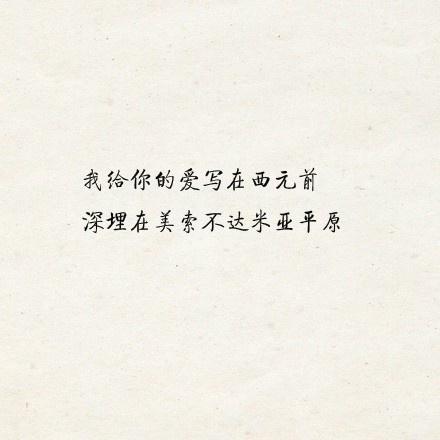 我给你的爱写在西元前
深埋在美索不达米亚平原